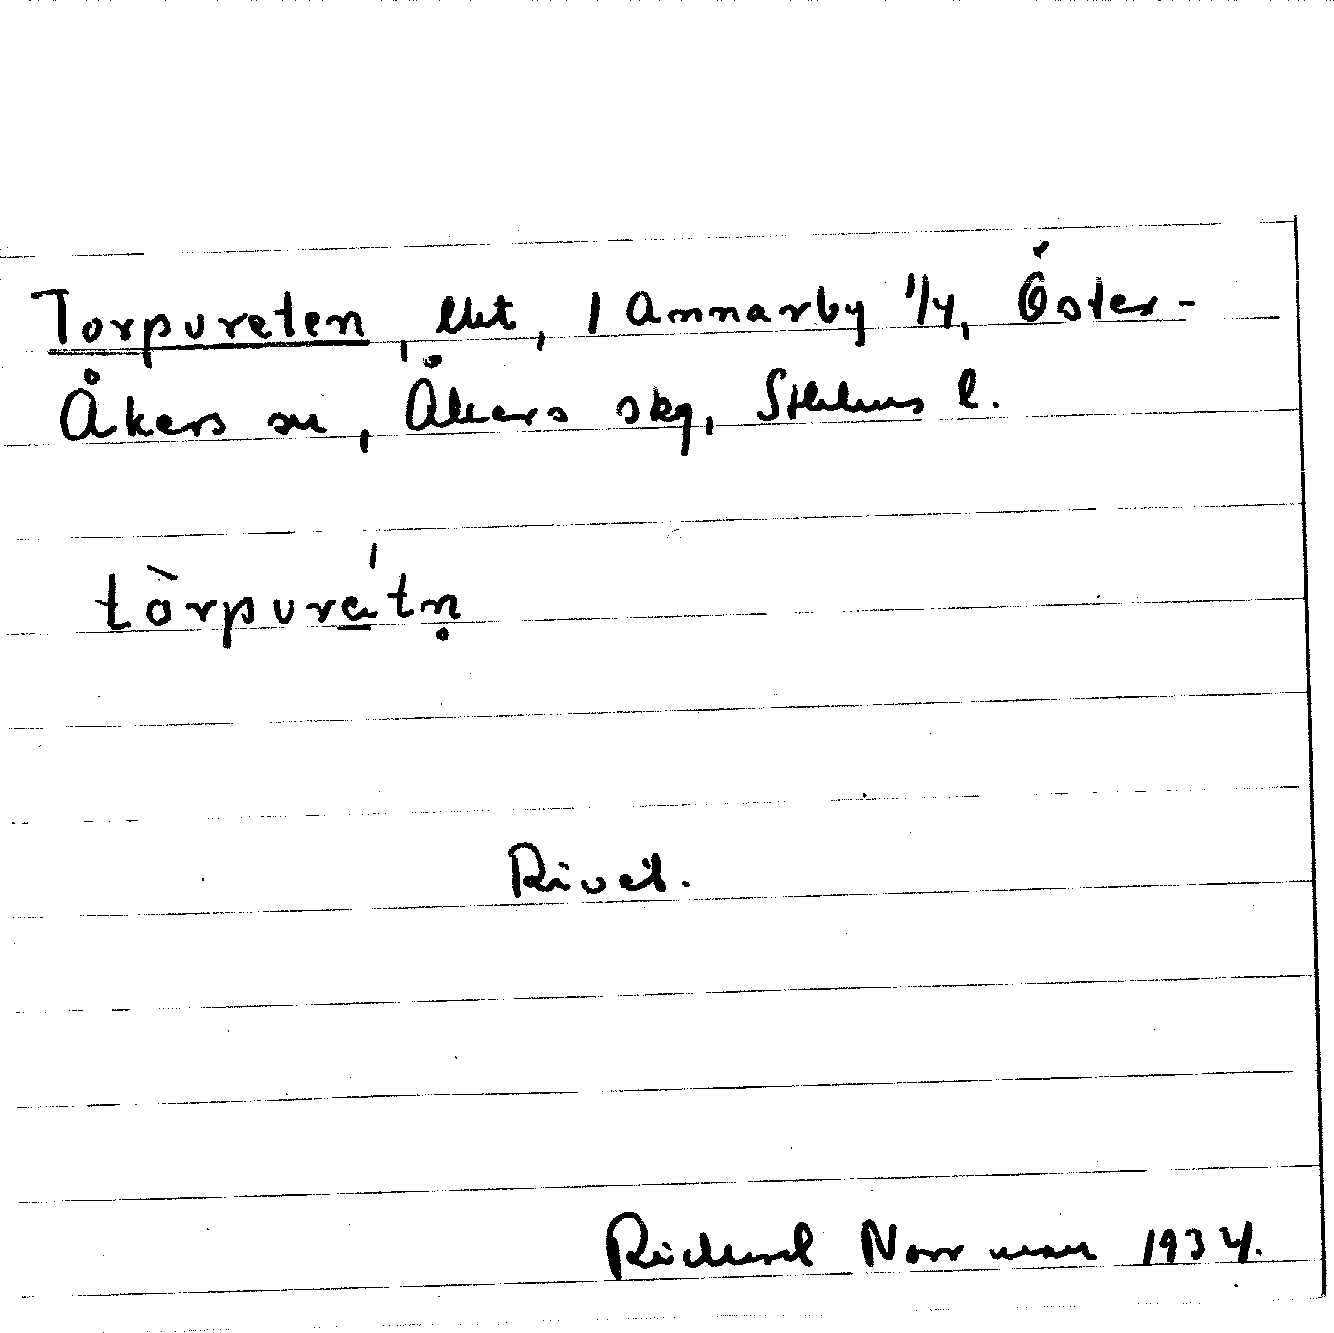 Torpureten, lht, 1 Ammarby 1/4, Öster-
Åkers sn, Åkers skg, Sthlms l.
tòrpuré̱tn̥
Rivet.
Richard Norrman 1934.